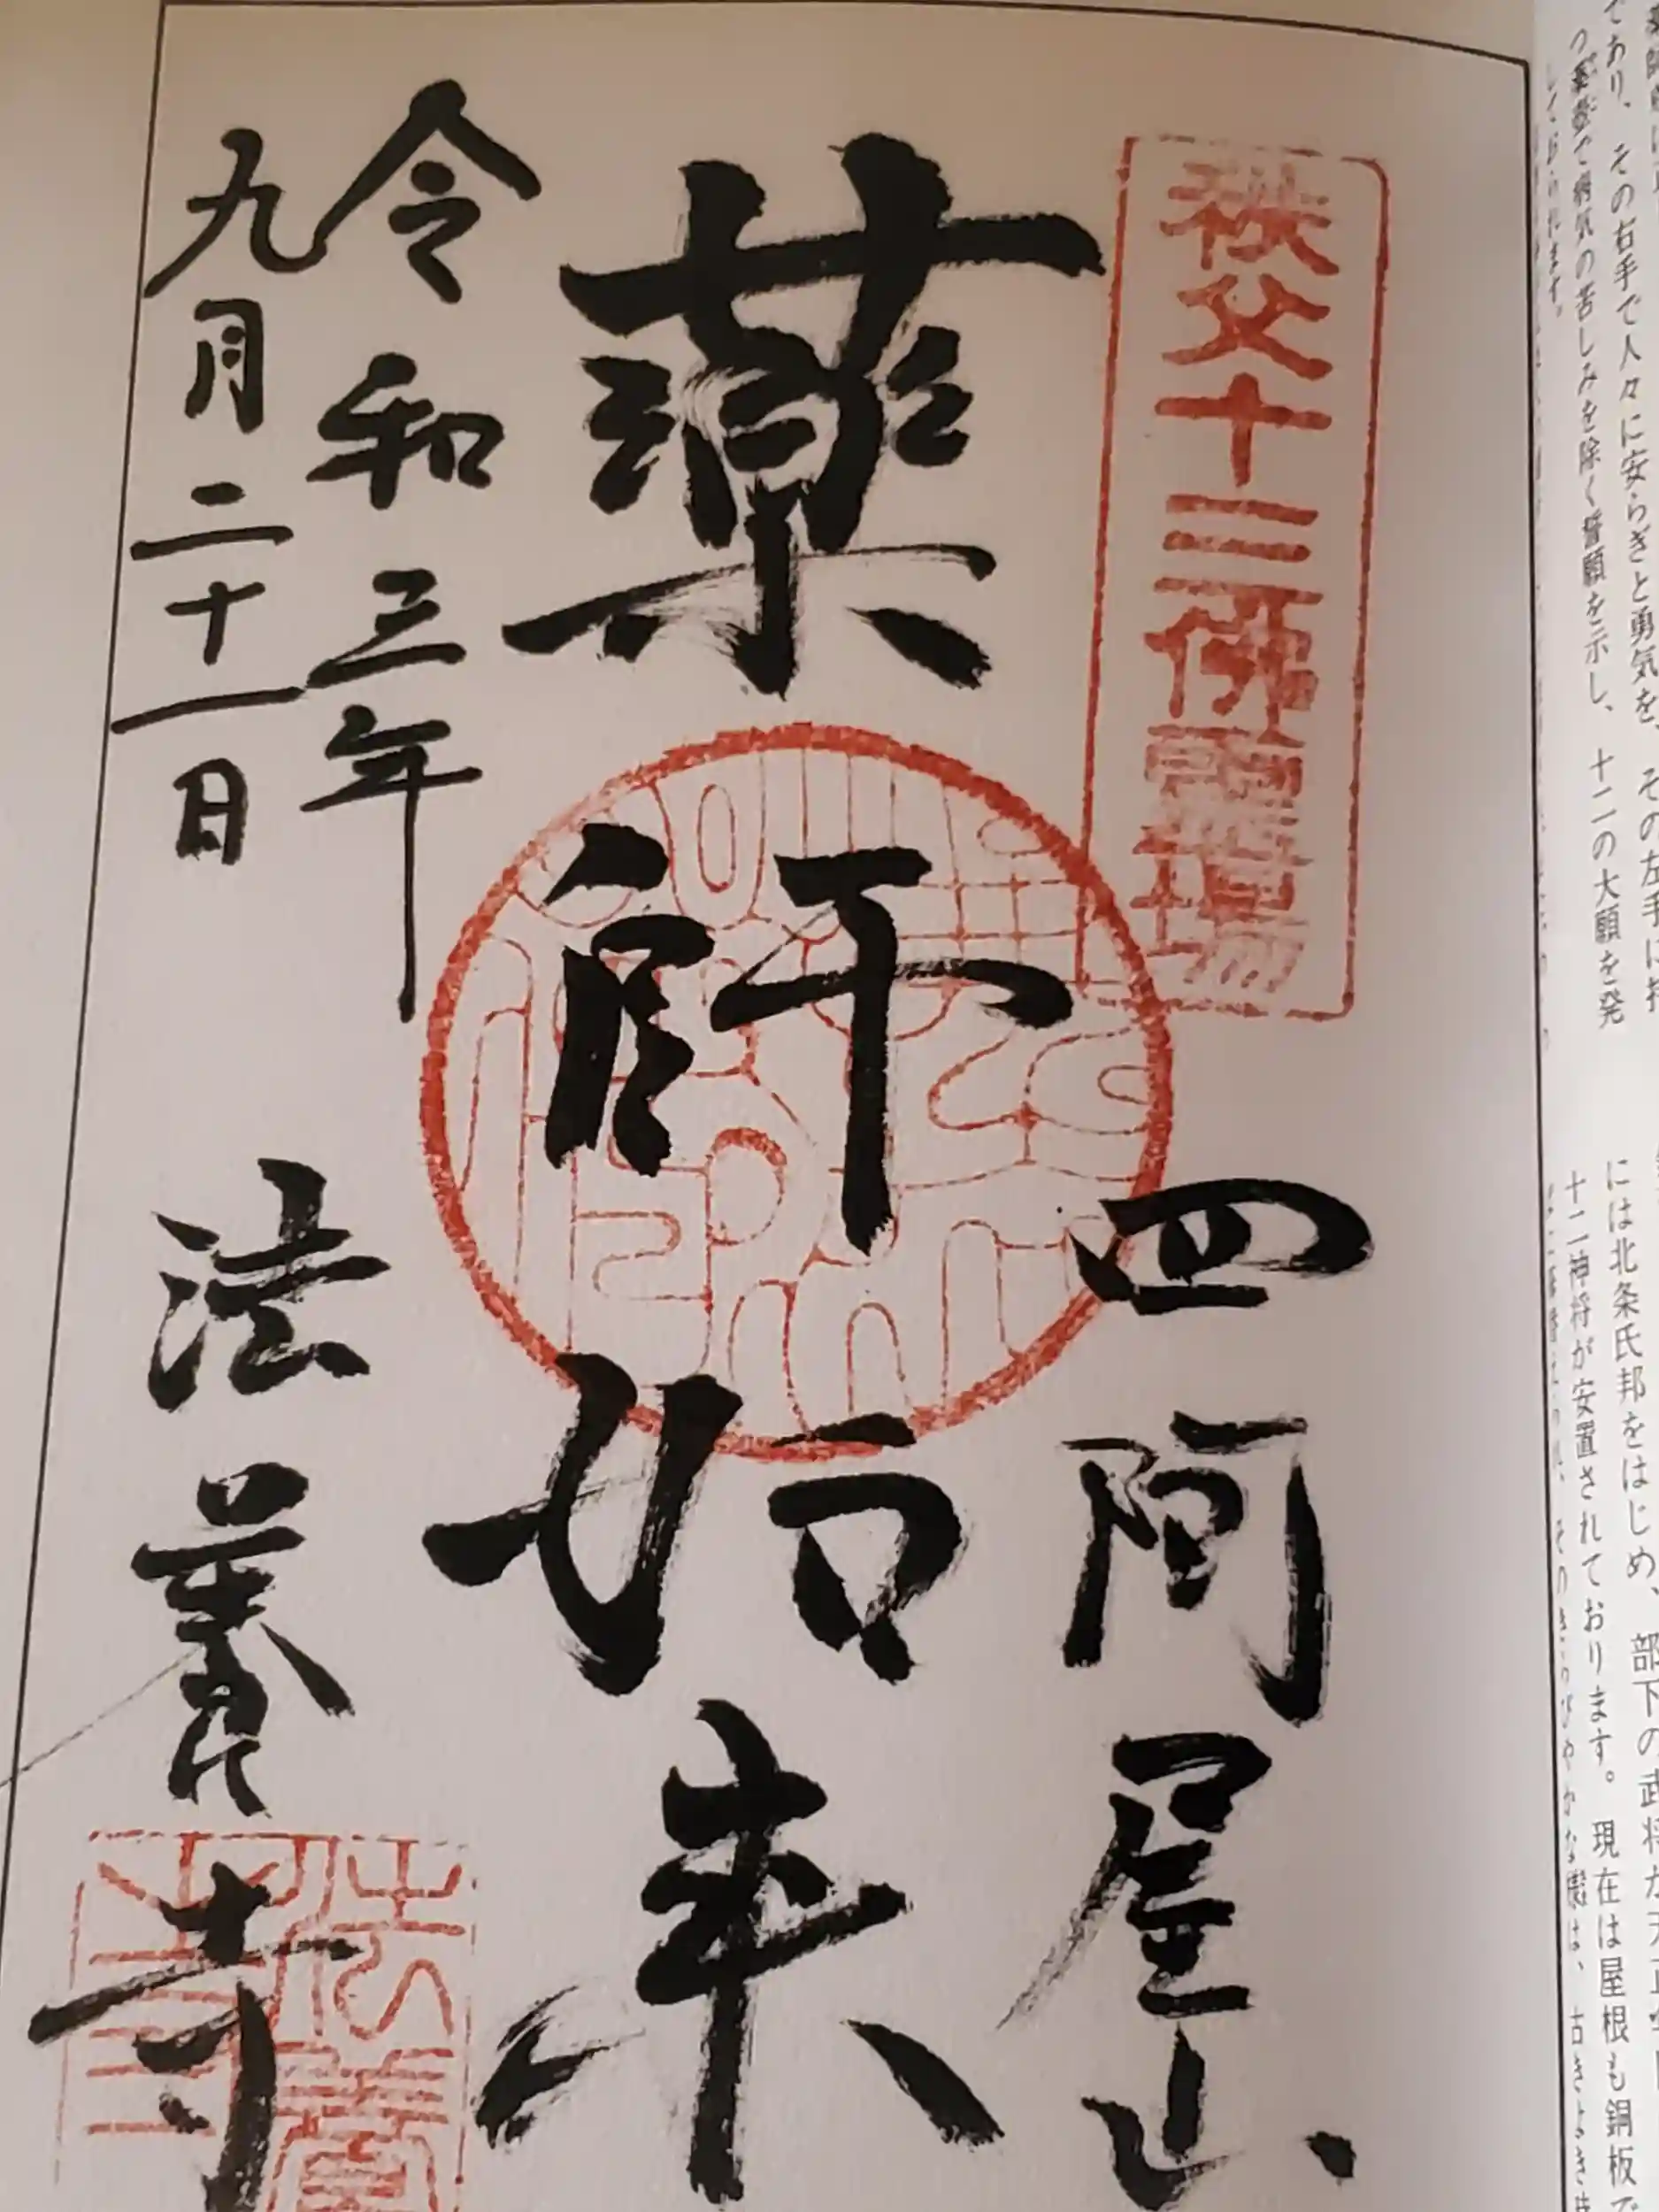 であり、その右手で人々に安らぎと勇気を、その左手に持
つ薬壷で病気の苦しみを除く誓願を示し、十二の大願を発
しておられます。
には北条氏邦をはじめ、部下の武将が天正
十二神将が安置されております。現在は屋根も銅板で
秩父十三佛霊場
四阿屋山
薬師如来
令和三年
九月二十一日
法養寺